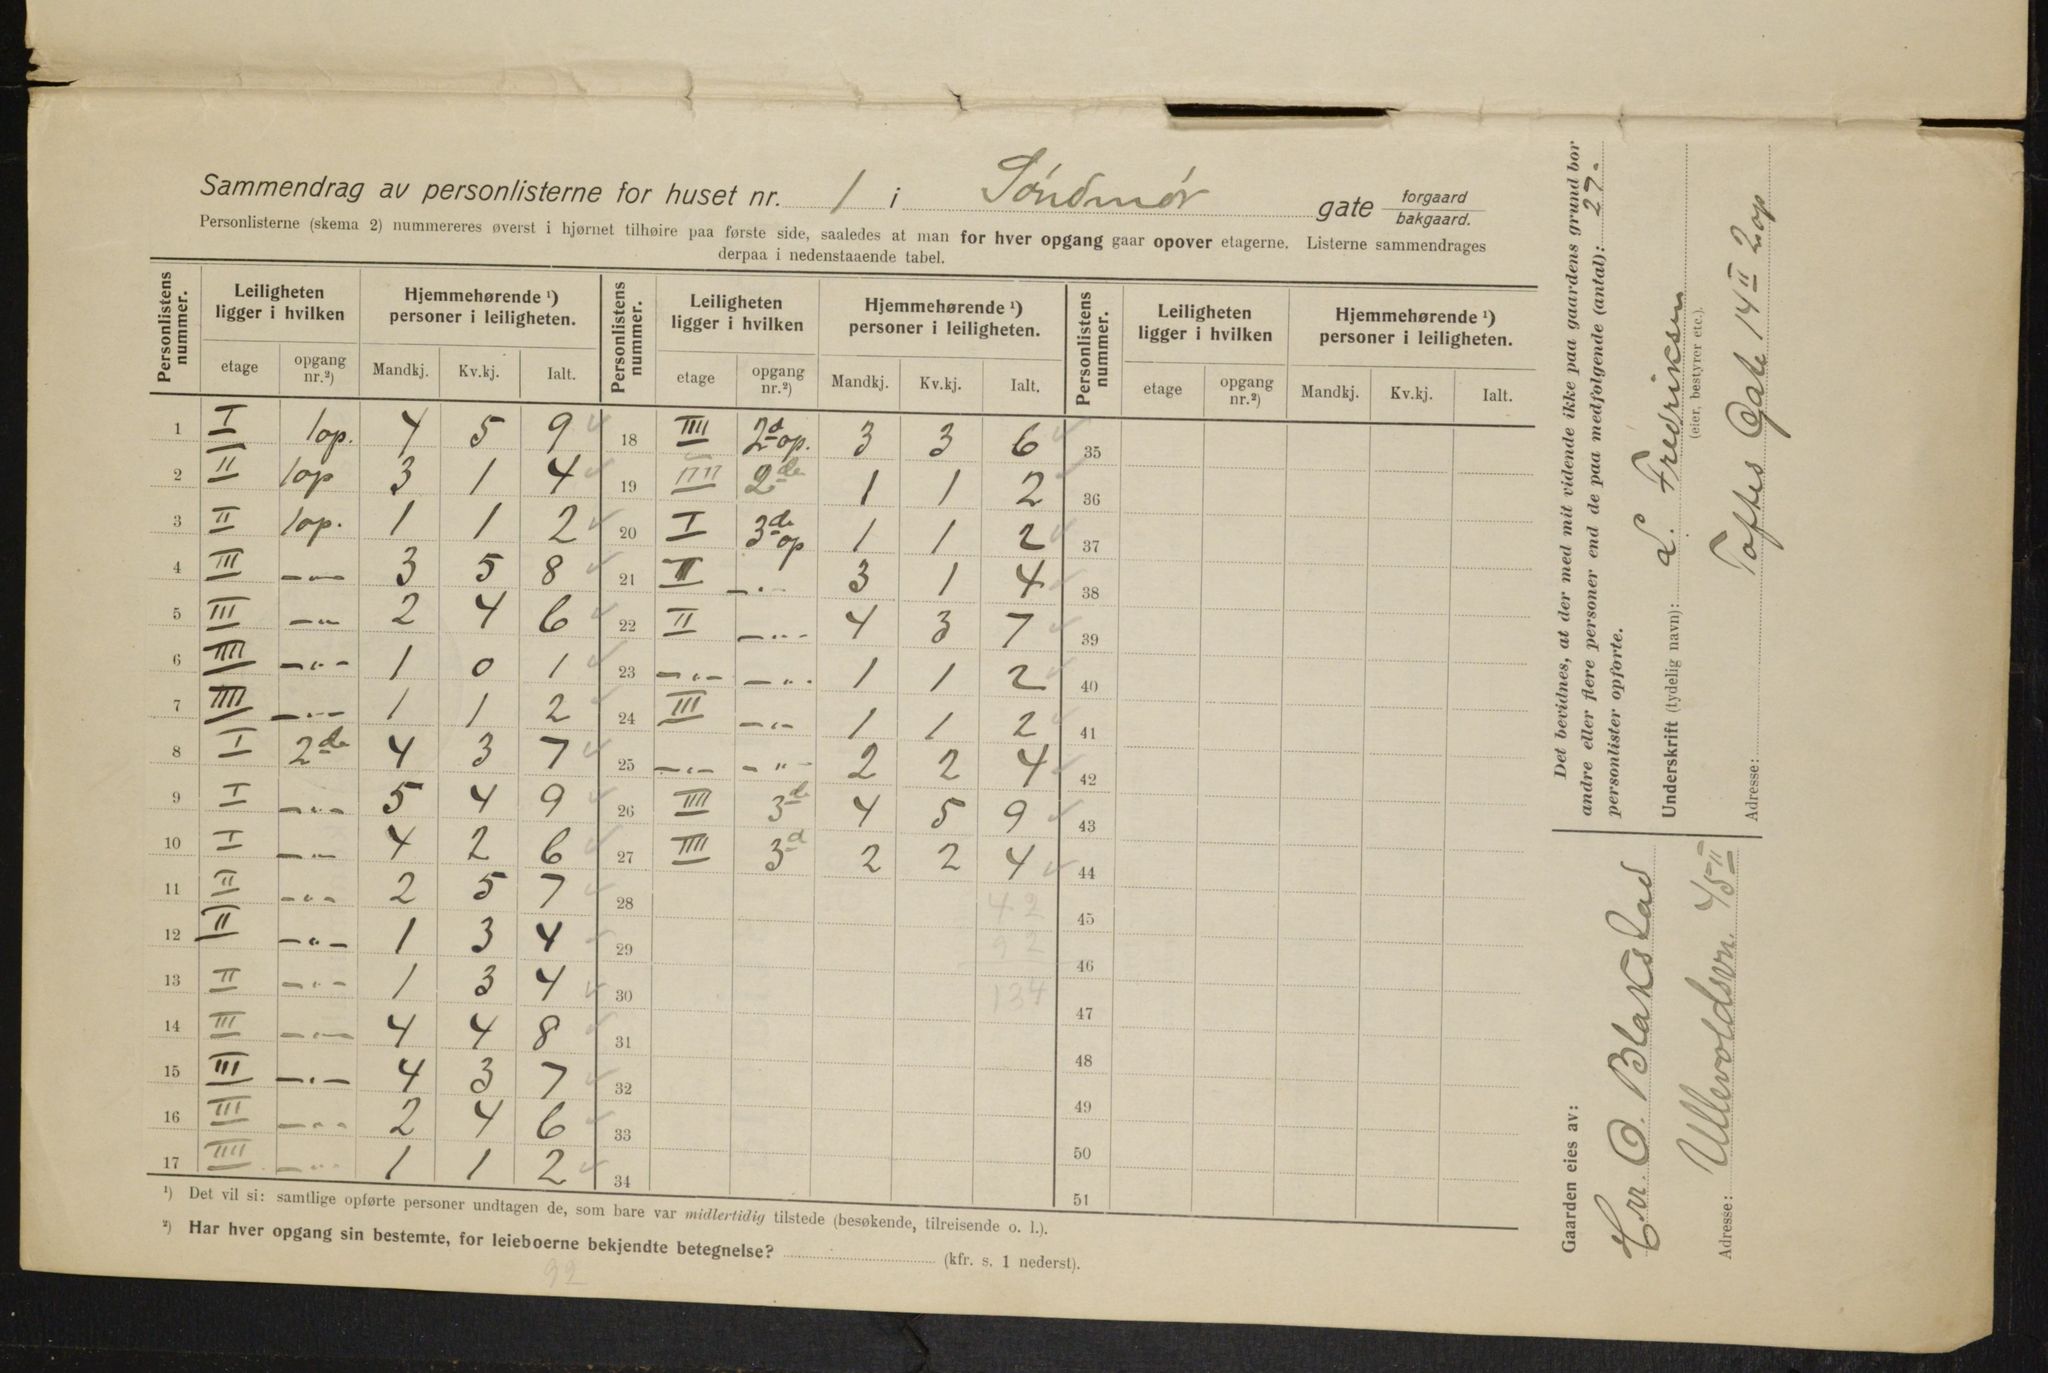 Sammendrag av personlisterne for huset nr. 1 i Söndmör gate forgaard bakgaard.
Personlisterne (skema 2) nummereres øverst i hjørnet tilhøire paa første side, saaledes at man for hver opgang gaar opover etagerne. Listerne sammendrages
derpaa i nedenstaaende tabel.
Personlistens nummer. Leiligheten ligger i hvilken Hjemmehørende ¹) personer i leiligheten. Personlistens nummer. Leiligheten ligger i hvilken Hjemmehørende ¹) personer i leiligheten. Personlistens nummer. Leiligheten ligger i hvilken Hjemmehørende ¹) personer i leiligheten.
etage opgang nr.²) Mandkj. Kv.kj. Ialt. etage opgang nr.²) Mandkj. Kv.kj. Ialt. etage opgang nr.²) Mandkj. Kv.kj. Ialt.
1 I 1op. 4 5 9 18 IIII 2d op. 3 3 6 35
2 II 1op 3 1 4 19 IIII 2de 1 1 2 36
3 II 1op. 1 1 2 20 I 3de op 1 1 2 37
4 III —"— 3 5 8 21 II —"— 3 1 4 38
5 III —"— 2 4 6 22 II —"— 4 3 7 39
6 IIII —"— 1 0 1 23 —"— —"— 1 1 2 40
7 IIII —"— 1 1 2 24 III —"— 1 1 2 41
8 I 2de 4 3 7 25 —"— —"— 2 2 4 42
9 I —"— 5 4 9 26 IIII 3de 4 5 9 43
10 I —"— 4 2 6 27 IIII 3d 2 2 4 44
11 II —"— 2 5 7 28 42 45
12 II —"— 1 3 4 29 92 46
13 II —"— 1 3 4 30 134 47
14 III —"— 4 4 8 31 48
15 III —"— 4 3 7 32 49
16 III —"— 2 4 6 33 50
17 IIII —"— 1 1 2 34 51
¹) Det vil si: samtlige opførte personer undtagen de, som bare var midlertidig tilstede (besøkende, tilreisende o. l.).
²) Har hver opgang sin bestemte, for leieboerne bekjendte betegnelse? (kfr. s. 1 nederst).
92
Det bevidnes, at der med mit vidende ikke paa gaardens grund bor
andre eller flere personer end de paa medfølgende (antal): 27.
personlister opførte.
Underskrift (tydelig navn): L. Fredriksen
(eier, bestyrer etc.).
Adresse: Toftes Gate 14 II 2op
Gaarden eies av:
Hr. O. Blakstad
Adresse: Ullevoldsvn. 45 II